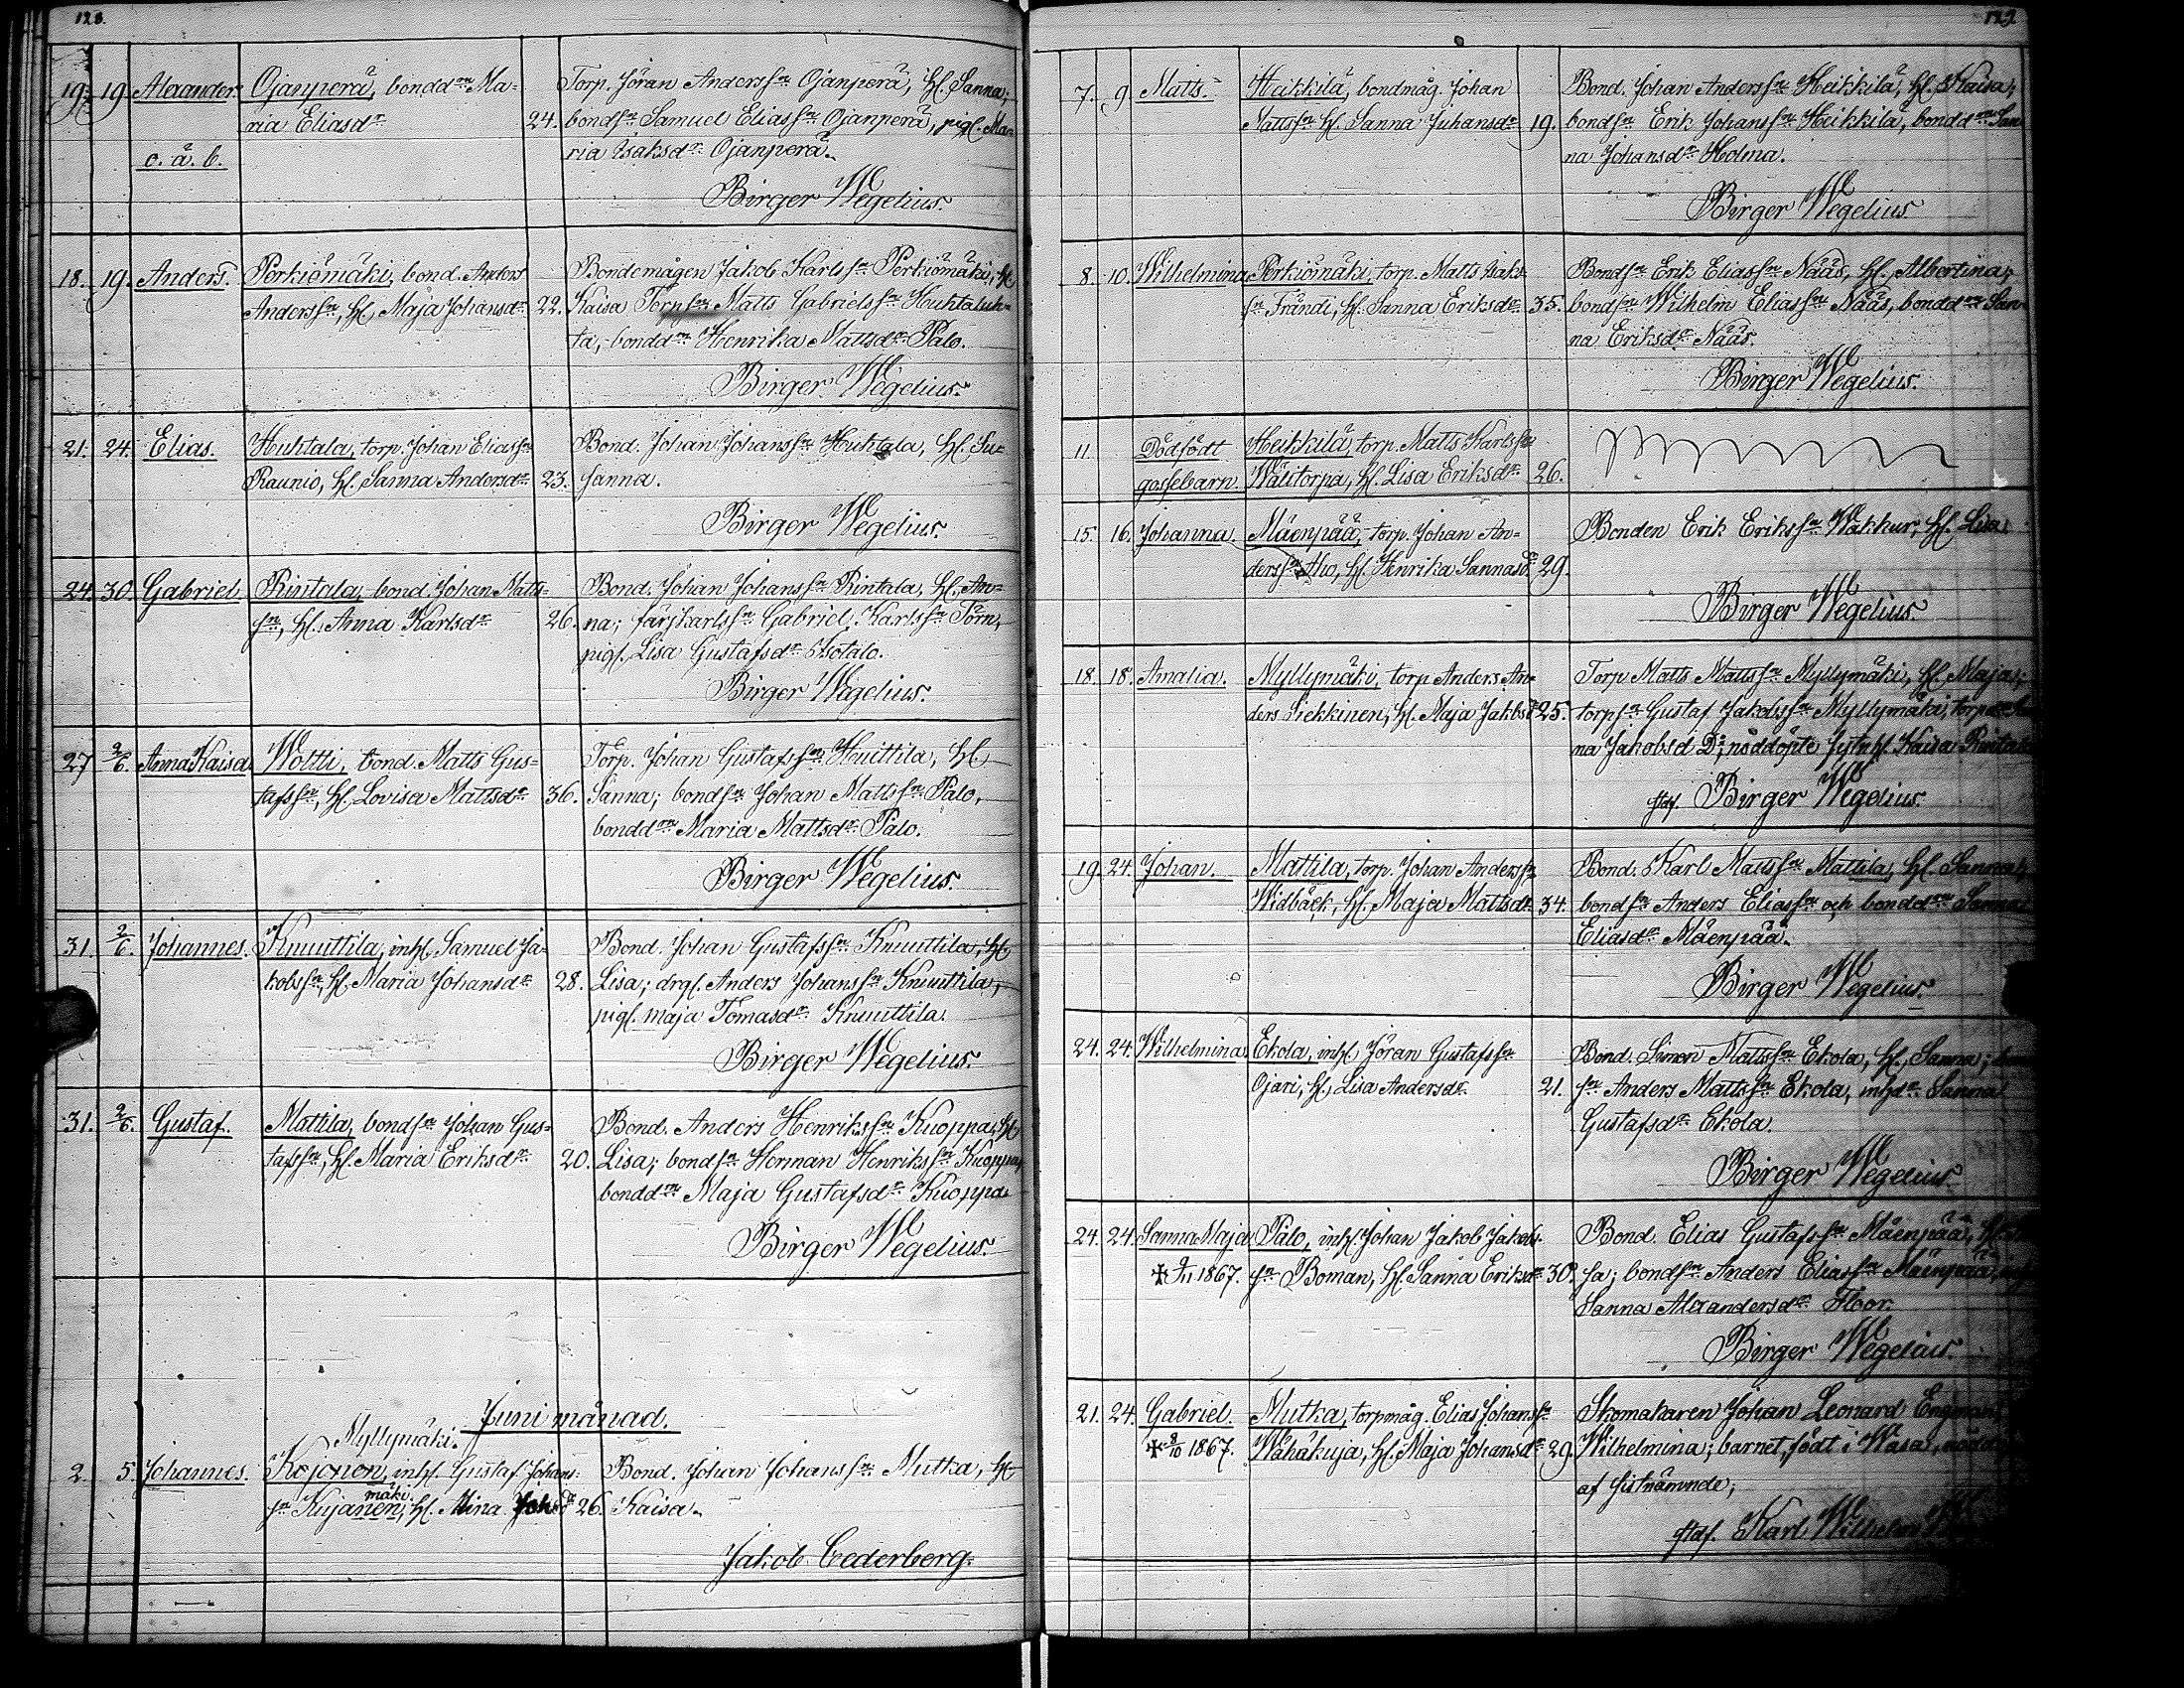 128.
19. 19. Alexander. Ojanperä, bondd:rn Ma-
ria Eliasd:r 24.
o. ä. b.
Torp. Jöran Andersson Ojanperä, h. Sanna;
bondsn Samuel Eliassn Ojanperä, pig. Ma-
ria Isaksd:r Ojanperä.
Birger Wegelius.
18. 19. Anders. Perkiömäki, bond. Anders
Anderssn, h. Maja Johansd:r 22.
Bondemågen Jakob Karlssn Perkiömäki, h.
Kaisa Torpsn Matts Gabrielssn Huhtaluh-
ta, bondd:rn Henrika Mattsd:r Palo.
Birger Wegelius.
21. 24. Elias. Huhtala, torp. Johan Eliassn
Raunio, h. Sanna Andersd:r 23.
Bond. Johan Johanssn Huhtala, h. Su-
sanna.
Birger Wegelius.
24. 30. Gabriel. Rintala, bond. Johan Matts-
sn, h. Anna Karlsd:r 26.
Bond. Johan Johanssn Rintala, h. An-
na; färjkarlssn Gabriel Karlssn Törn,
pig. Lisa Gustafsd:r Isotalo.
Birger Wegelius.
27 2/6. Anna Kaisa Woltti, bond. Matts Gus-
tafssn, h. Lovisa Mattsd:r 36.
Torp. Johan Gustafssn Huittila, h.
Sanna; bondsn Johan Mattssn Palo,
bondd:rn Maria Mattsd:r Palo.
Birger Wegelius.
31. 2/6. Johannes. Knuuttila, inh. Samuel Ja-
kobssn, h. Maria Johansd:r 28.
Bond. Johan Gustafssn Knuuttila, h.
Lisa; drg. Anders Johanssn Knuuttila,
pig. Maja Tomasd:r Knuuttila.
Birger Wegelius.
31. 2/6. Gustaf. Mattila, bondsn Johan Gus-
tafssn, h. Maria Eriksd:r 20.
Bond. Anders Henrikssn Kuoppa, h.
Lisa; bondsn Herman Henrikssn Kuoppa,
bondd:rn Maja Gustafsd:r Kuoppa.
Birger Wegelius.
Juni månad.
Myllymäki.
2. 5. Johannes. Kojonen, inh. Gustaf Johans-
mäki.
sn Kujanen, h. Mina Johsd:r 26.
Bond. Johan Johanssn Mutka, h.
Kaisa.
Jakob Cederberg.
129
7. 9. Matts. Heikkilä, bondmåg. Johan
Mattssn h. Sanna Juhansd:r 19.
Bond. Johan Anderssn Heikkilä, h. Kaisa;
bondsn Erik Johanssn Heikkilä, bondd:rn San-
na Johansd:r Holma.
Birger Wegelius.
8. 10. Wilhelmina. Perkiömäki, torp. Matts Isaks-
sn Frändi, h. Sanna Eriksd:r 35.
Bondsn Erik Eliassn Nääs, h. Albertina;
bondsn Wilhelm Eliassn Nääs, bondd:rn San-
na Eriksd:r Nääs.
Birger Wegelius.
11. Dödfödt Heikkilä, torp. Matts Karlssn
gossebarn. Wälitorpa, h. Lisa Eriksd:r 26.
15. 16. Johanna. Mäenpää, torp. Johan An-
derssn Aho, h. Henrika Sannasd:r 29.
Bonden Erik Erikssn Wakkur, h. Lisa.
Birger Wegelius.
18. 18. Amalia. Myllymäki, torp Anders An-
ders Liekkinen, h. Maja Jakbsd 25.
Torp Matts Mattssn Myllymäki, h. Maja;
torpsn Gustaf Jakobssn Myllymäki, torpd:rn
na Jakobsd D:o; nöddöpte Kaisa
Birger Wegelius.
19. 24. Johan. Mattila, torp. Johan Anderssn
Widbäck, h. Maja Mattsd:r 34.
Bond. Karl Mattssn Mattila, h. Sanna;
bondsn Anders Eliassn och bondd:rn Sanna
Eliasd:r Mäenpää.
Birger Wegelius.
24. 24. Wilhelmina. Ekola, inh. Jöran Gustafssn
Ojari, h. Lisa Andersd:r 21.
Bond. Simon Mattssn Ekola, h. Sanna;
sn Anders Mattssn Ekola, inhd:r Sanna
Gustafsd:r Ekola.
Birger Wegelius.
24. 24. Sanna Maja Palo, inh. Johan Jakob Jakobs-
1867. sn Boman, h. Sanna Eriksd:r 30.
Bond. Elias Gustafssn Mäenpää,
sa; bondsn Anders Eliassn Mäenpää,
Sanna Alexandersd:r Floor.
Birger Wegelius.
21. 24. Gabriel. Mutka, torpmåg. Elias Johanssn
✠ 8/10 1867. Wähäkuja, h. Maja Johansd:r 29.
Skomakaren Johan Leonard Engman,
Wilhelmina; barnet födt i Wasa,
af sistnämnde;
Karl Wilhelm